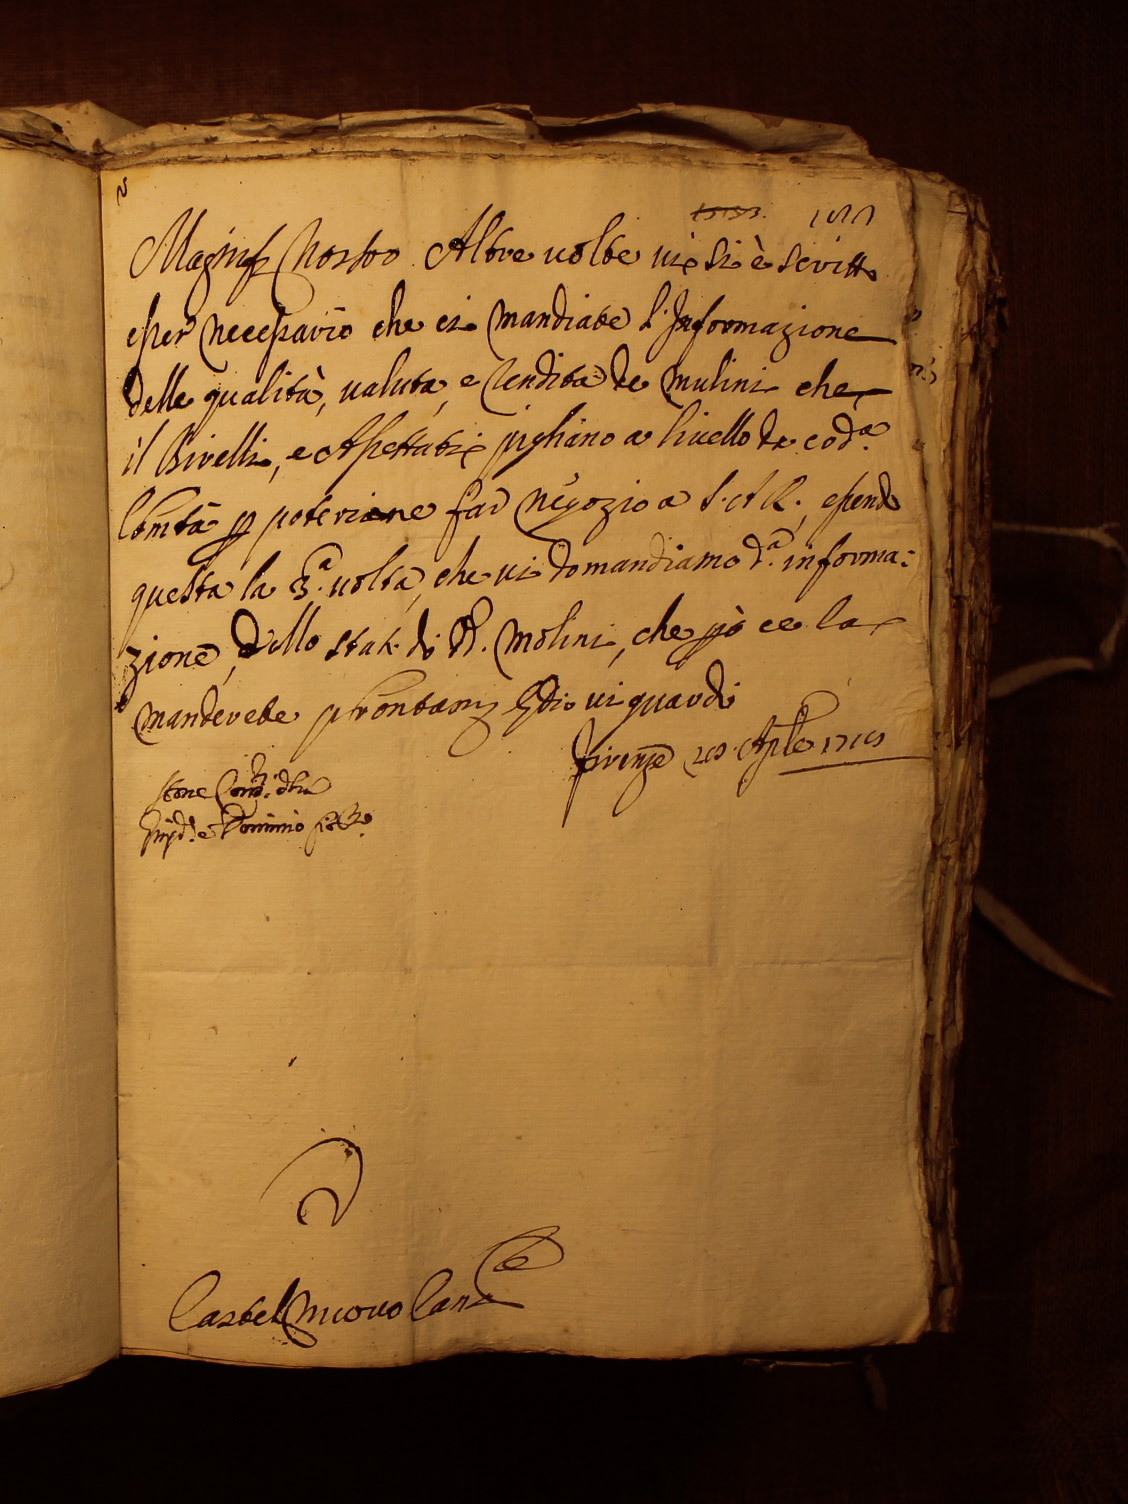 Magnif. Nostro Altre volte vi si è scritto
esser necessario che ci mandiate l'Informazione
delle qualità, valuta, e rendita de mulini che
il Bivelli, e Aspettati pigliano a livello da cod.a
Comtà p poterne far negozio a S. A. R., essendo
questa la 3.a volta, che vi domandiamo d.a informa:
zione, dello stato di d. Molini, che però ce la
manderete prontam. E Dio vi guardi
Firenze Aple
Castel Nuovo